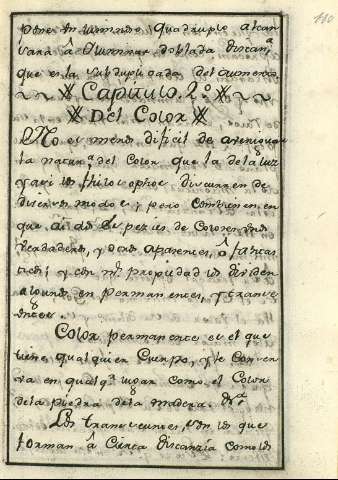 110
pone un luminoso quadruplo alcan
zará â Iluminar doblada distan.ª
que es la subduplicada del numero.
Capitulo 2.º
Del Color
No es menos dificil de averiguar
la natur.ª del Color que la de la luz
y asi los filosophos discurren de
diversos modos; pero combienen en
que ai dos Espezies de Colores unos
verdaderos, y otros aparentes, ô fantas
ticos; y con m.ª propiedad los dividen
algunos en permanentes, y transe
untes.
Color permanente es el que
tiene qualquier Cuerpo, y le conser
va en qualq.ª lugar como el Color
de la piedra de la madera &.ª
Los transeuntes, son los que
forman â Cierta distanzia como los